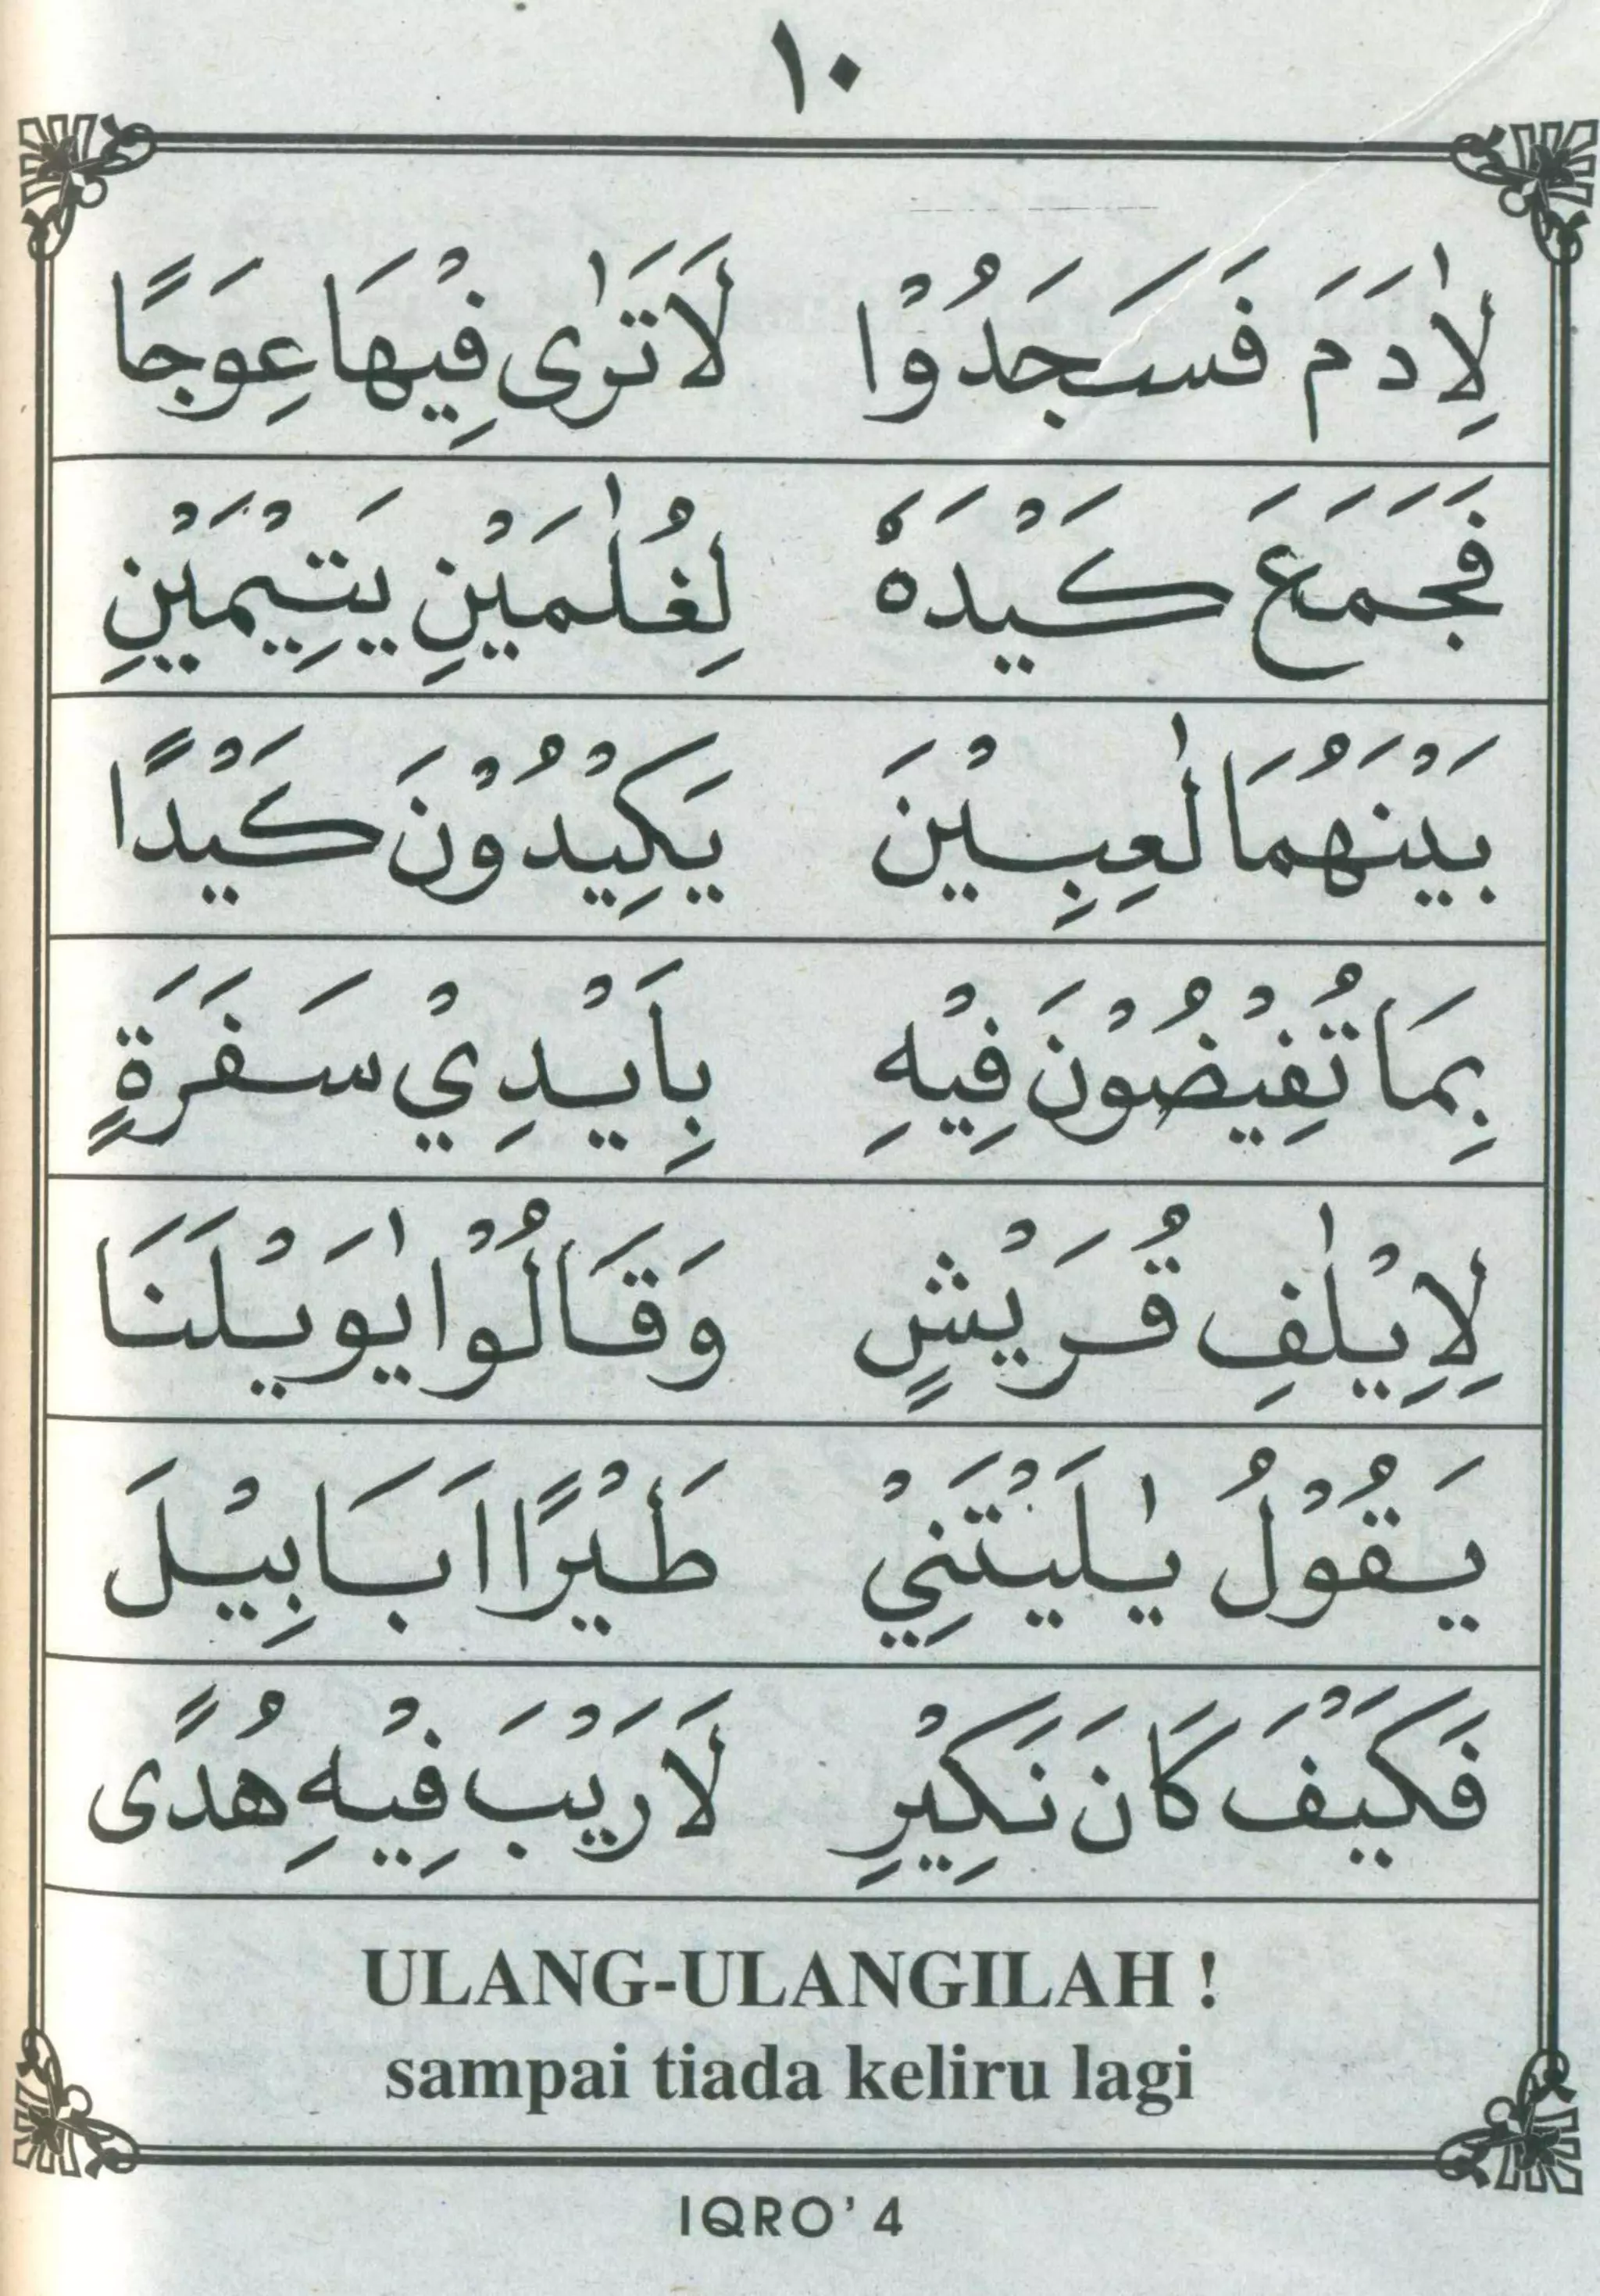 ١٠
لِاٰدَمَ فَسَجَدُوْا لَا تَرٰى فِيْهَا عِوَجًا
فَجَمَعَ كَيْدَهٗ لِغُلٰمَيْنِ يَتِيْمَيْنِ
بَيْنَهُمَا لٰعِبِيْنَ يَكِيْدُوْنَ كَيْدًا
بِمَا تُفِيْضُوْنَ فِيْهِ بِاَيْدِيْ سَفَرَةٍ
لِاِيْلٰفِ قُرَيْشٍ وَقَالُوْا يٰوَيْلَنَا
يَقُوْلُ يٰلَيْتَنِيْ طَيْرًا اَبَابِيْلَ
فَكَيْفَ كَانَ نَكِيْرِ لَا رَيْبَ فِيْهِ هُدًى
ULANG-ULANGILAH !
sampai tiada keliru lagi
IQRO' 4